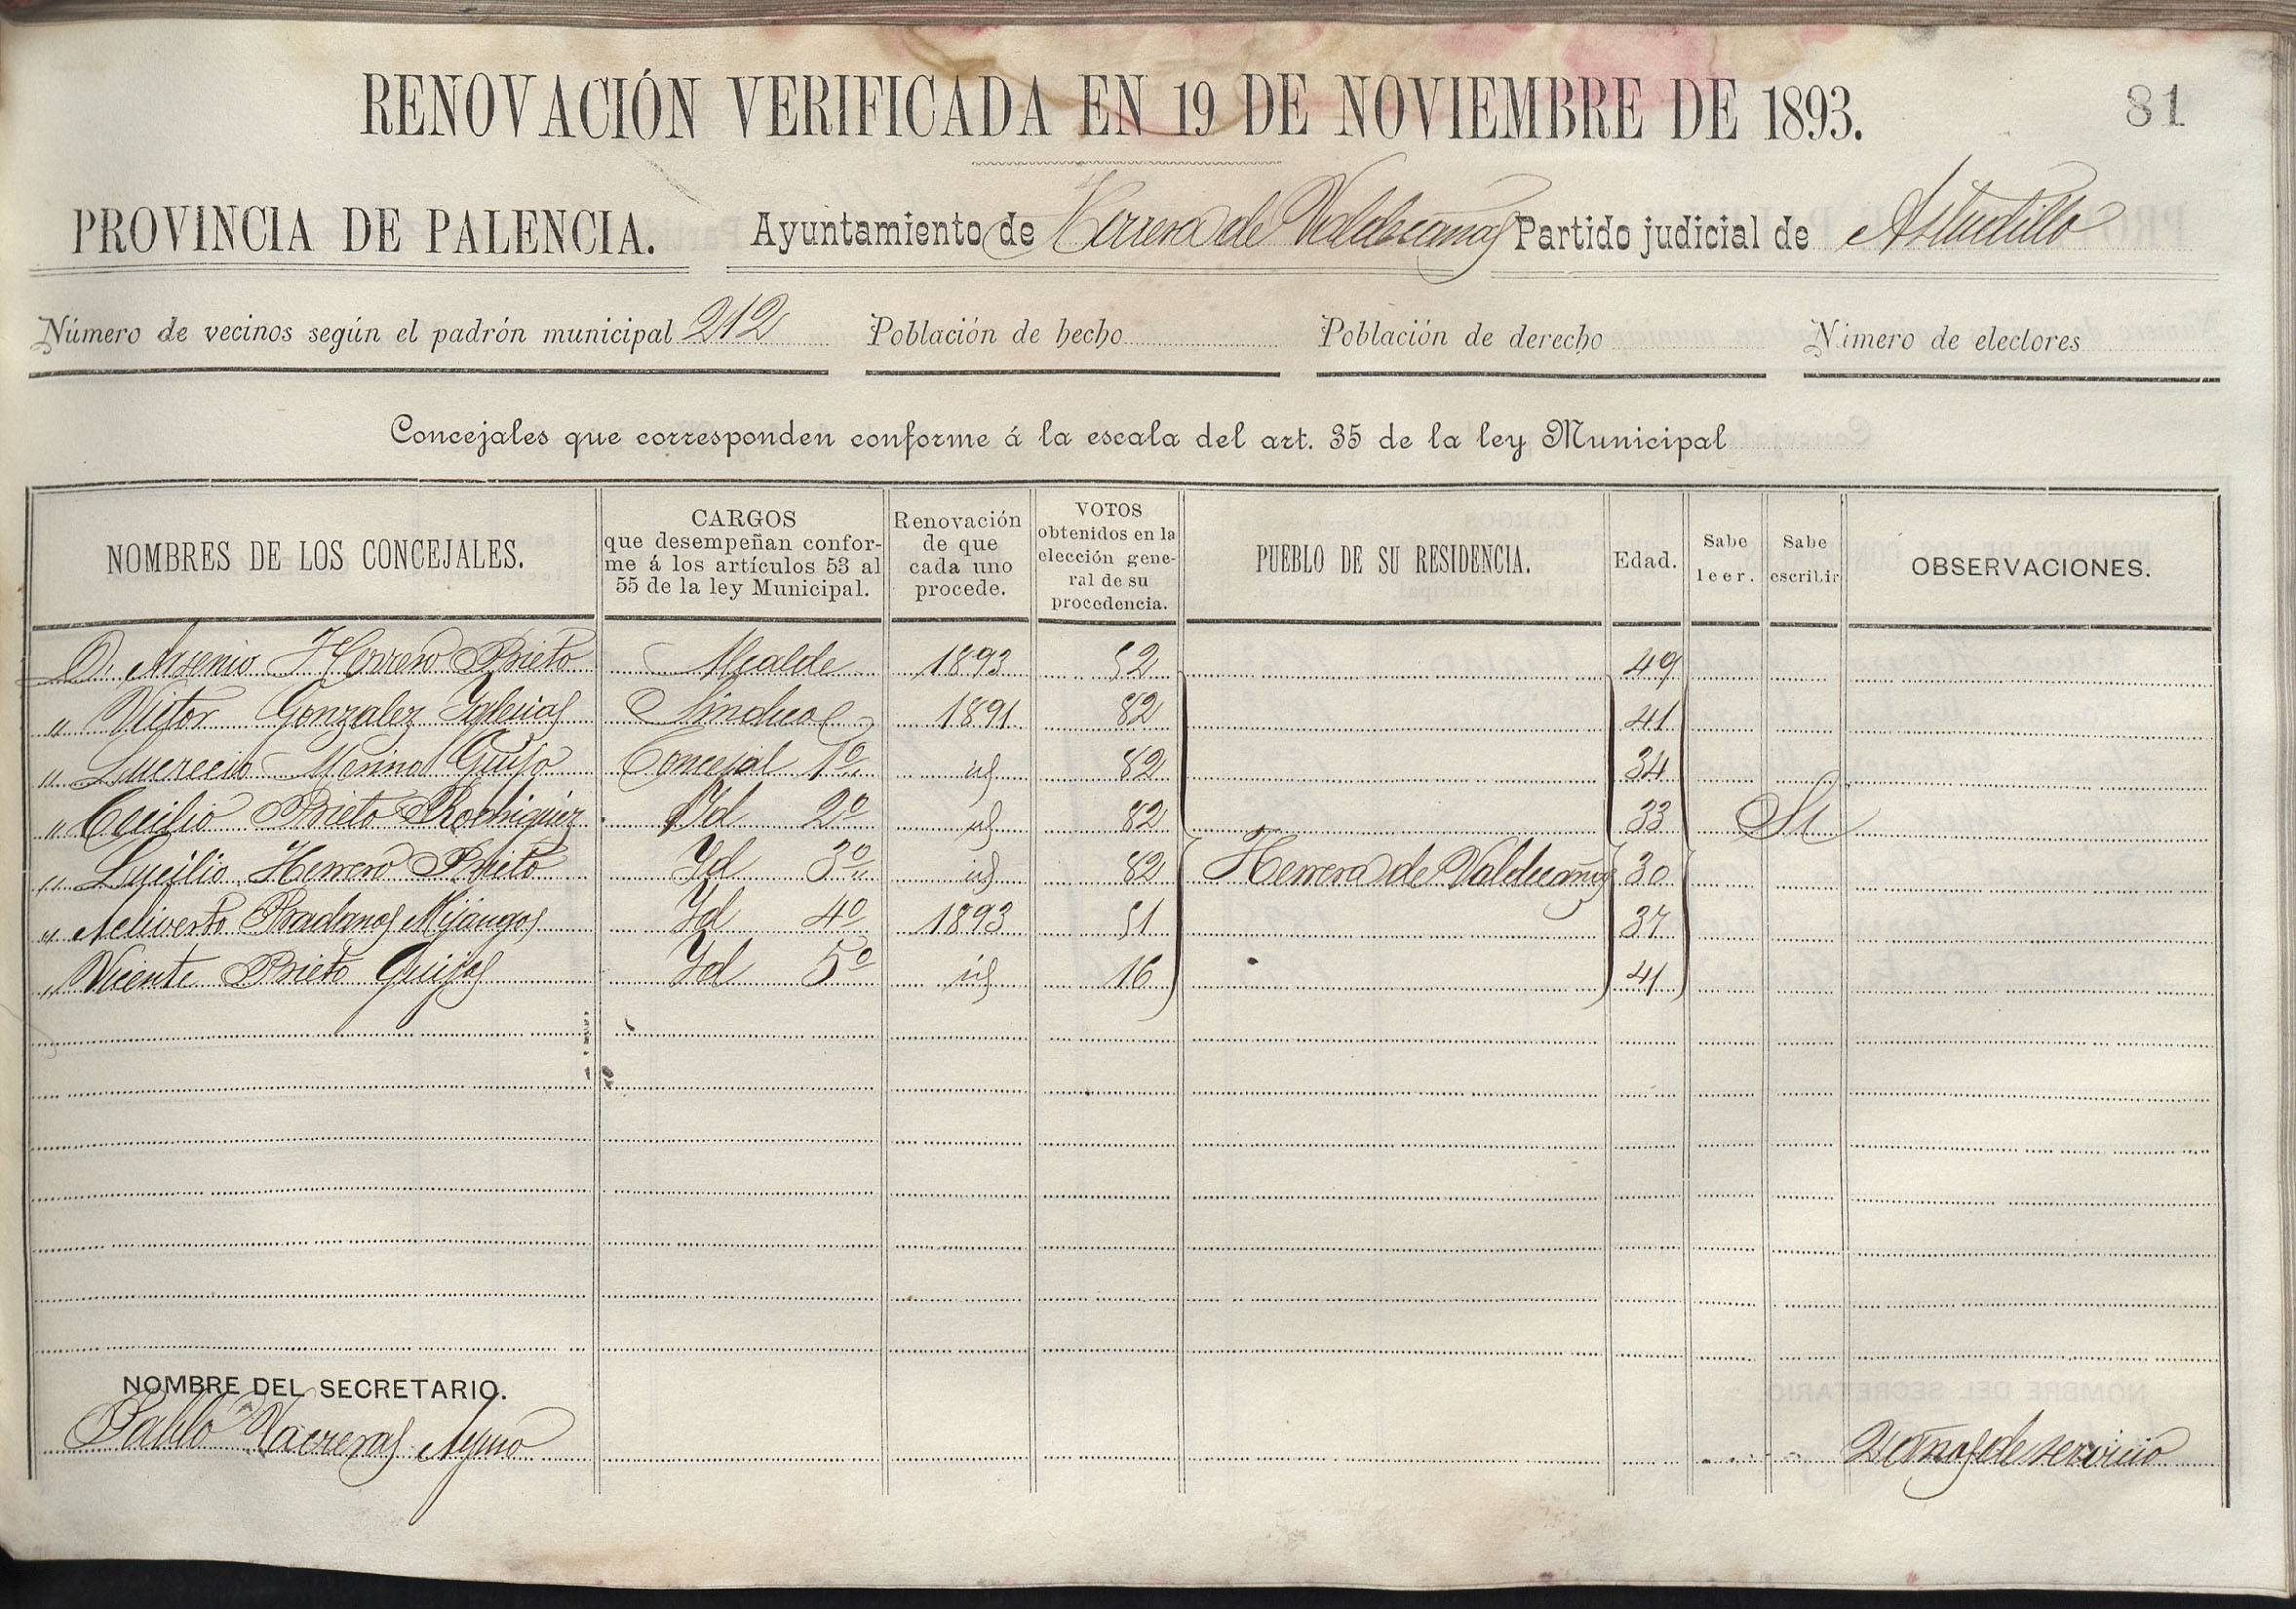 RENOVACIÓN VERIFICADA EN 19 DE NOVIEMBRE DE 1893.
81
PROVINCIA DE PALENCIA. Ayuntamiento de Herrera de Valdecañas Partido judicial de Astudillo
Número de vecinos según el padrón municipal 212 Población de hecho Población de derecho Número de electores
Concejales que corresponden conforme á la escala del art. 35 de la ley Municipal
NOMBRES DE LOS CONCEJALES. CARGOS que desempeñan conforme á los artículos 53 al 55 de la ley Municipal. Renovación de que cada uno procede. VOTOS obtenidos en la elección general de su procedencia. PUEBLO DE SU RESIDENCIA. Edad. Sabe leer. Sabe escribir OBSERVACIONES.
D. Arsenio Herrero Prieto Alcalde 1893 52 49
" Victor Gonzalez Yglesias Sindico 1891 82 41
" Lucrecio Merino Guijo Concejal 1º id 82 34
" Cecilio Prieto Rodriguez Yd 2º id 82 33 Si
" Lucilio Herrero Prieto Yd 3º id 82 Herrera de Valdecañas 30
" Pradanos Mijangos Yd 4º 1893 51 37
" Vicente Prieto Yd 5º id 16 41
NOMBRE DEL SECRETARIO.
Pablo
de servicio